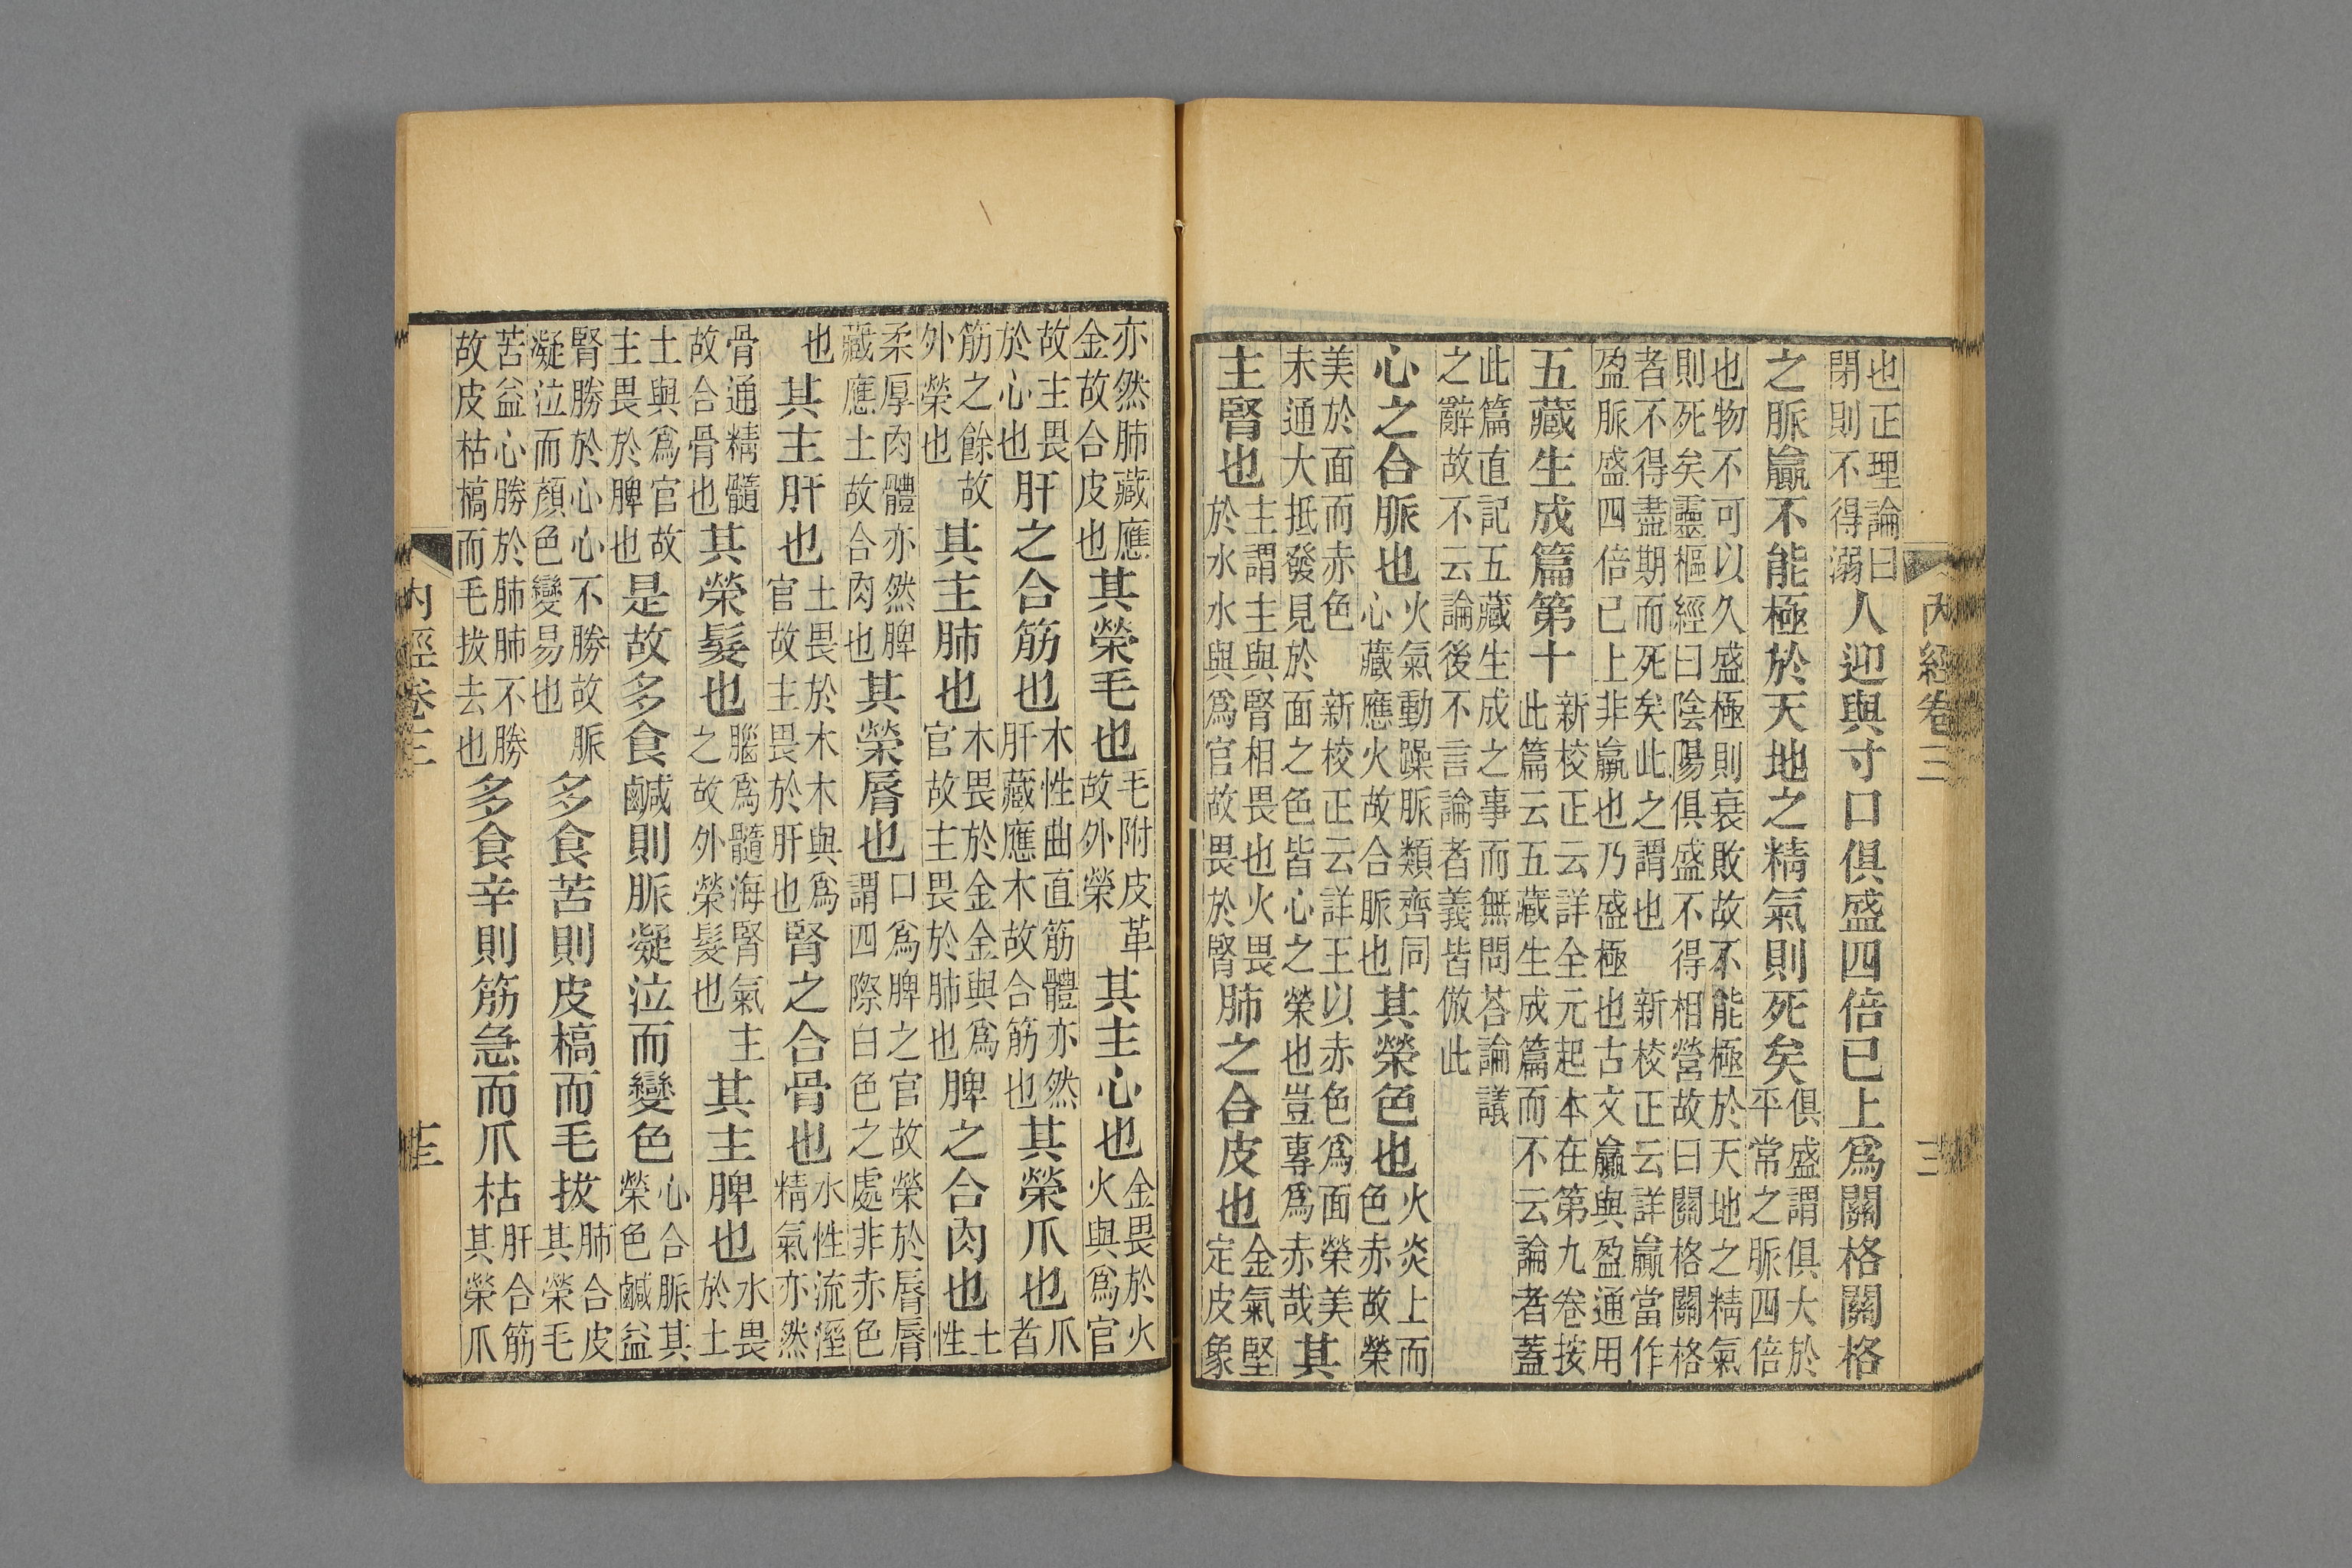 內經卷三 三
也正理論曰閉則不得溺人迎與寸口俱盛四倍已上爲關格關格
之脈羸不能極於天地之精氣則死矣俱盛謂俱大於平常之脈四倍
也物不可以久盛極則衰敗故不能極於天地之精氣則死矣靈樞經曰陰陽俱盛不得相營故曰關格關格
者不得盡期而死矣此之謂也 新校正云詳羸當作盈脈盛四倍已上非羸也乃盛極也古文羸與盈通用
五藏生成篇第十新校正云詳全元起本在第九卷按此篇云五藏生成篇而不云論者蓋
此篇直記五藏生成之事而無問荅論議之辭故不云論後不言論者義皆倣此
心之合脈也火氣動躁脈類齊同心藏應火故合脈也其榮色也火炎上而色赤故榮
美於面而赤色 新校正云詳王以赤色爲面榮美未通大抵發見於面之色皆心之榮也豈專爲赤哉其
主腎也主謂主與腎相畏也火畏於水水與爲官故畏於腎肺之合皮也金氣堅定皮象
亦然肺藏應金故合皮也其榮毛也毛附皮革故外榮其主心也金畏於火火與爲官
故主畏於心也肝之合筋也木性曲直筋體亦然肝藏應木故合筋也其榮爪也爪者
筋之餘故外榮也其主肺也木畏於金金與爲官故主畏於肺也脾之合肉也土性
柔厚肉體亦然脾藏應土故合肉也其榮脣也口爲脾之官故榮於脣脣謂四際白色之處非赤色
也其主肝也土畏於木木與爲官故主畏於肝也腎之合骨也水性流溼精氣亦然
骨通精髓故合骨也其榮髮也腦爲髓海腎氣主之故外榮髮也其主脾也水畏於土
土與爲官故主畏於脾也是故多食鹹則脈凝泣而變色心合脈其榮色鹹益
腎勝於心心不勝故脈凝泣而顏色變易也多食苦則皮槁而毛拔肺合皮其榮毛
苦益心勝於肺肺不勝故皮枯槁而毛拔去也多食辛則筋急而爪枯肝合筋其榮爪
內經卷三